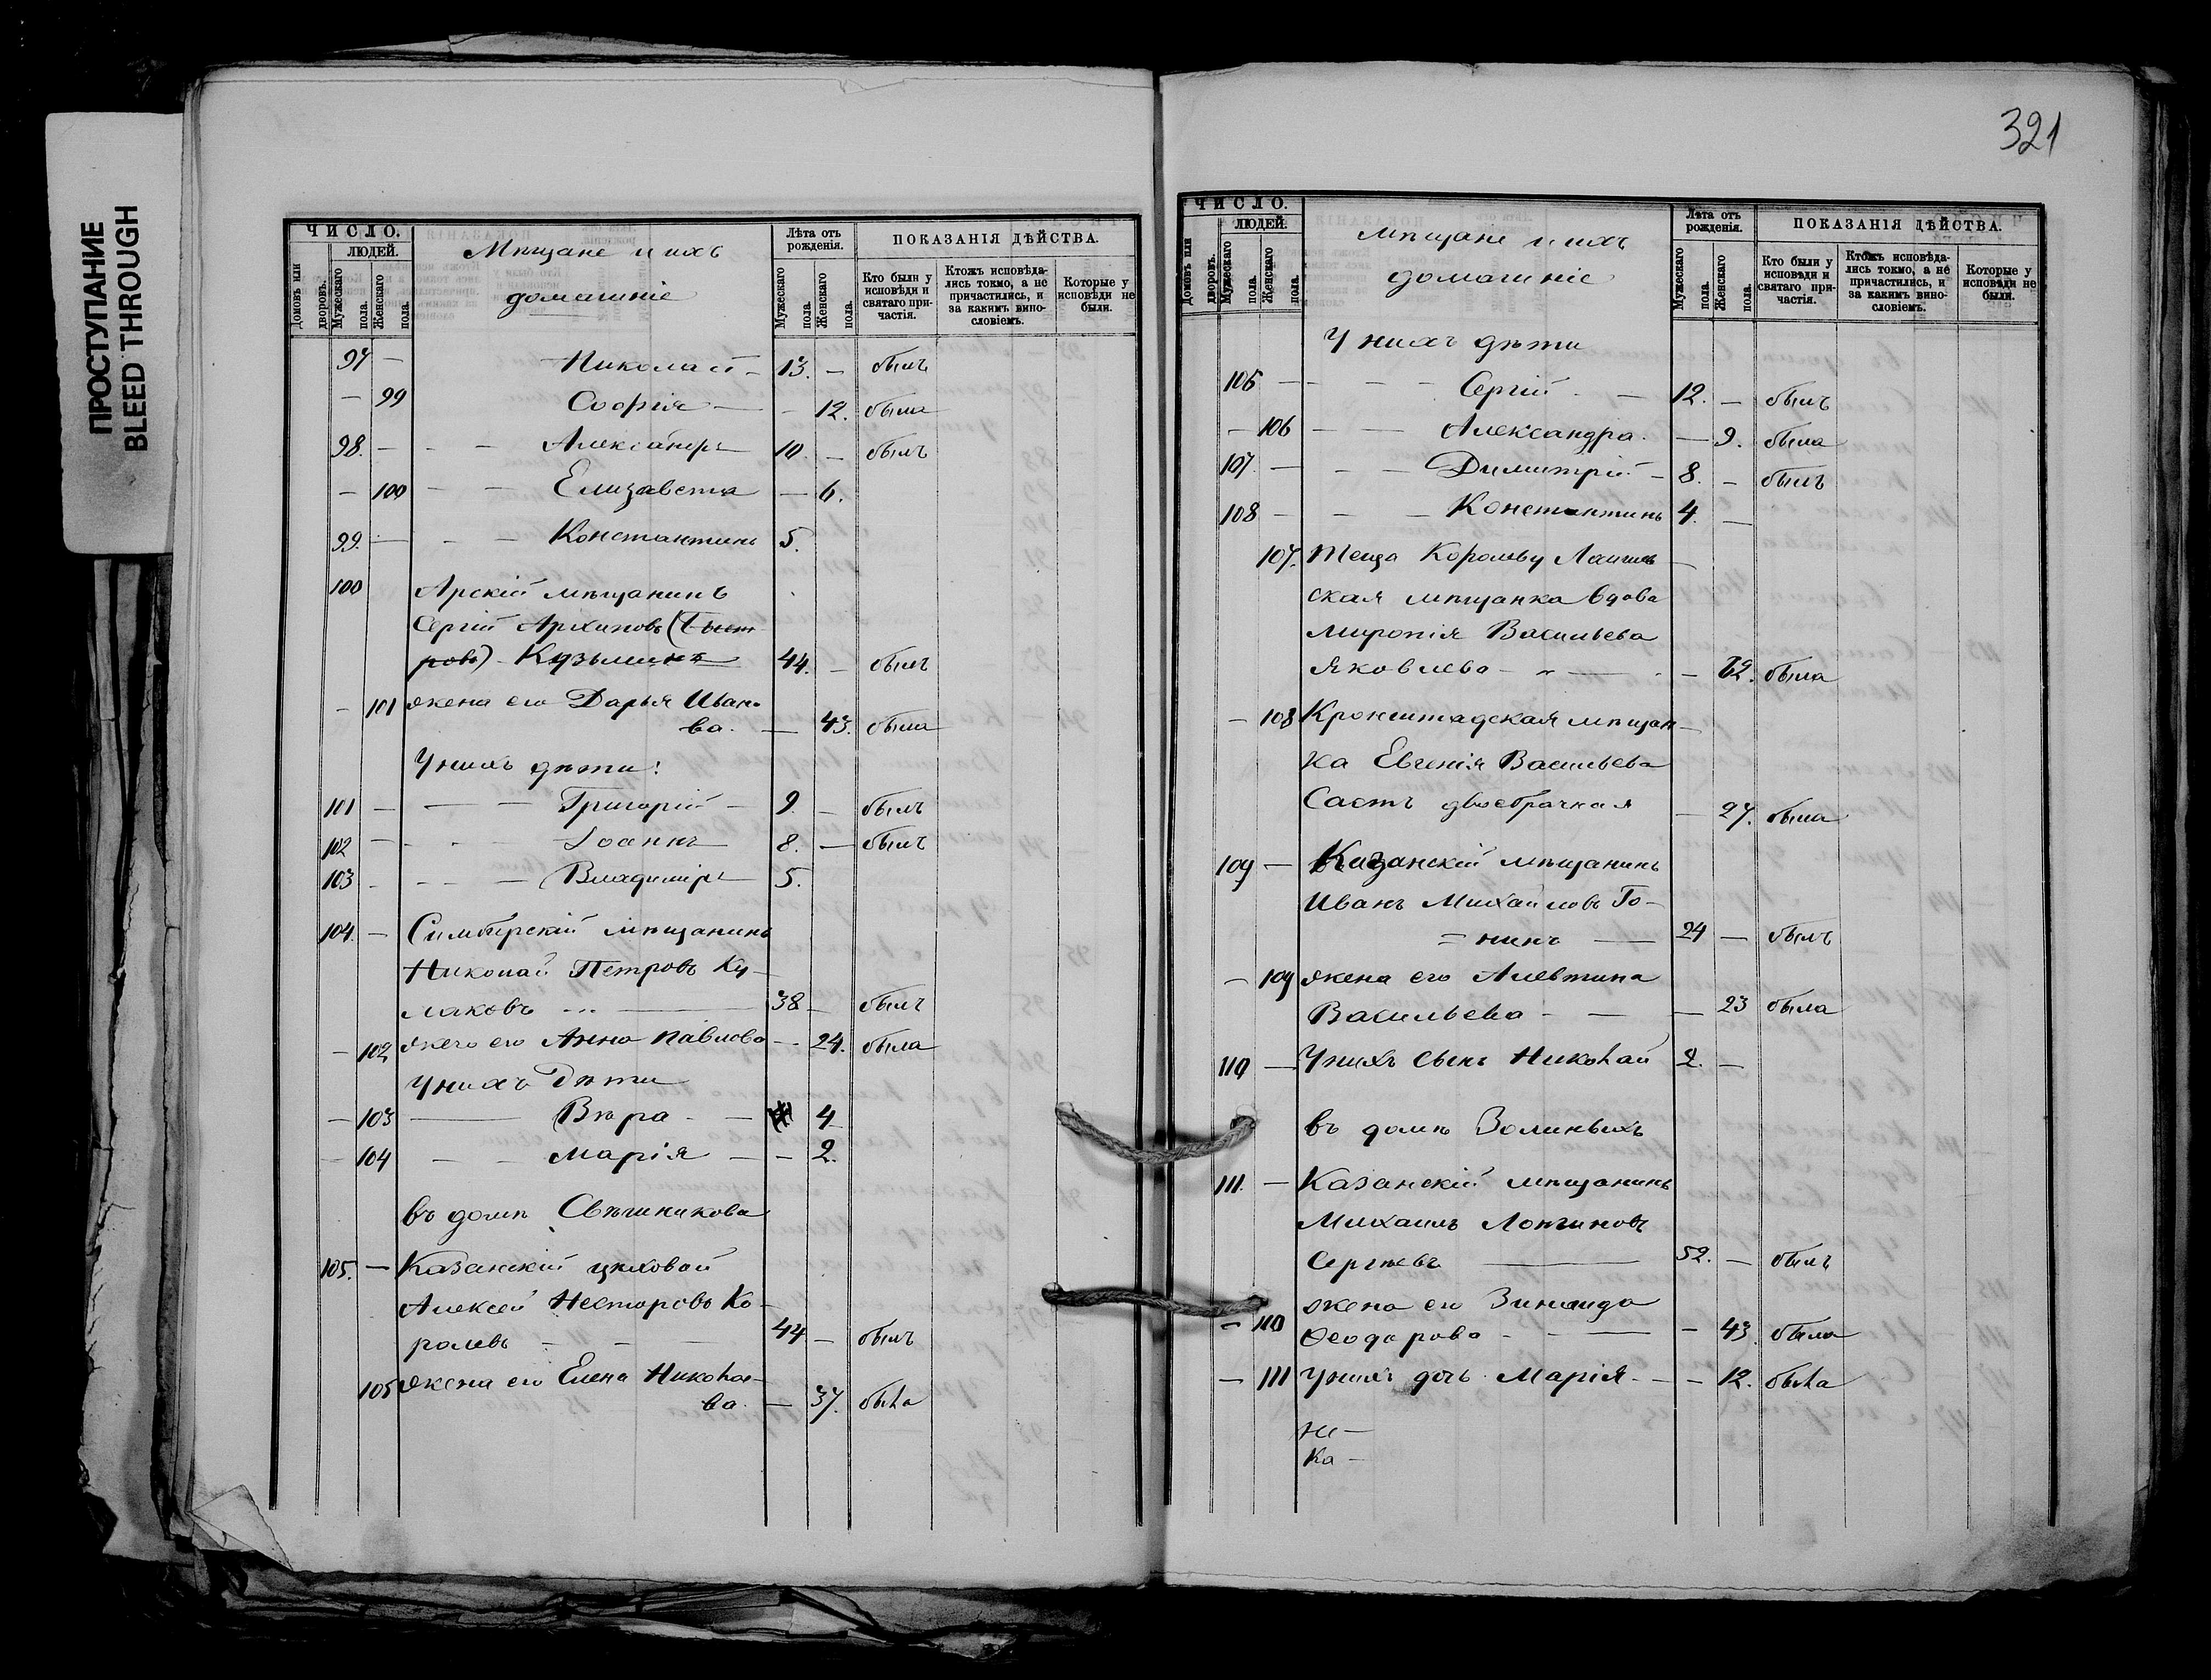 ПРОСТУПАНИЕ
BLEED THROUGH
ЧИСЛО.
ЛЮДЕЙ.
Домовъ или дворовъ.
Мужескаго пола.
Женскаго пола.
Мѣщане и ихъ
домашніе
Лѣта отъ рожденія.
Мужескаго пола.
Женскаго пола.
ПОКАЗАНІЯ ДѢЙСТВА.
Кто были у исповѣди и святаго при-частія.
Ктожъ исповѣда-лись токмо, а не причастились, и за какимъ вино-словіемъ.
Которые у исповѣди не были.
97 — Николай — 13. — былъ
— 99 Софія — — 12. была
98. — — — Александръ 10 — былъ
— 100 — — Елизавета — 6.
99. — — — Константинъ 5.
100 Арскій мѣщанинъ
Сергій Архиповъ
ровъ) Кузьминъ 44. — былъ
— 101 жена его Дарья Ивано-
ва. — 43. была
У нихъ дѣти:
101 — — — Григорій — 9. — былъ
102 — — — Іоаннъ 8. — былъ
103 — — — Владиміръ 5.
104. — Симбирскій мѣщанинъ
Николай Петровъ Ку-
лаковъ — 38 — былъ
— 102 жена его Анна Павлова — 24. была
У нихъ Дѣти
— 103 — Вѣра — 4
— 104 — — Марія — — 2.
въ домѣ Свѣшникова
105. — Казанскій цѣховой
Алексѣй Несторовъ Ко-
ролевъ — — 44 — былъ
105 жена его Елена Никола-
ва. — 37. была
321
ЧИСЛО.
ЛЮДЕЙ.
Домовъ или дворовъ.
Мужескаго пола.
Женскаго пола.
Мѣщане и ихъ
домашніе
Лѣта отъ рожденія.
Мужескаго пола.
Женскаго пола.
ПОКАЗАНІЯ ДѢЙСТВА.
Кто были у исповѣди и святаго при-частія.
Ктожъ исповѣда-лись токмо, а не причастились, и за какимъ вино-словіемъ.
Которые у исповѣди не были.
У нихъ дѣти
106 — — — Сергій — 12. — былъ
— 106 — — Александра — 9. была
107. — — — Димитрій — 8. — былъ
108 — — — Константинъ 4. —
107. Теща Королеву Лаишев
ская мѣщанка вдова
Миропія Васильева
Яковлева — — — 62. была
— 108 Кронштадская мѣщан-
ка Евгенія Васильева
Састъ двоебрачная — 27. была
109 — Казанскій мѣщанинъ
Иванъ Михаиловъ Го-
=нинъ — 24 — былъ
— 109 жена его Алевтина
Васильева — — — 23 была
110 — У нихъ сынъ Николай 2. —
въ домѣ Золиныхъ
111. — Казанскій мѣщанинъ
Михаилъ Лонгиновъ
Сергѣевъ — 52. — былъ
жена его Зинаида
— 110 Ѳеодорова — — — 43. была
— 111 У нихъ дочь Марія — — 12. была
Ка —